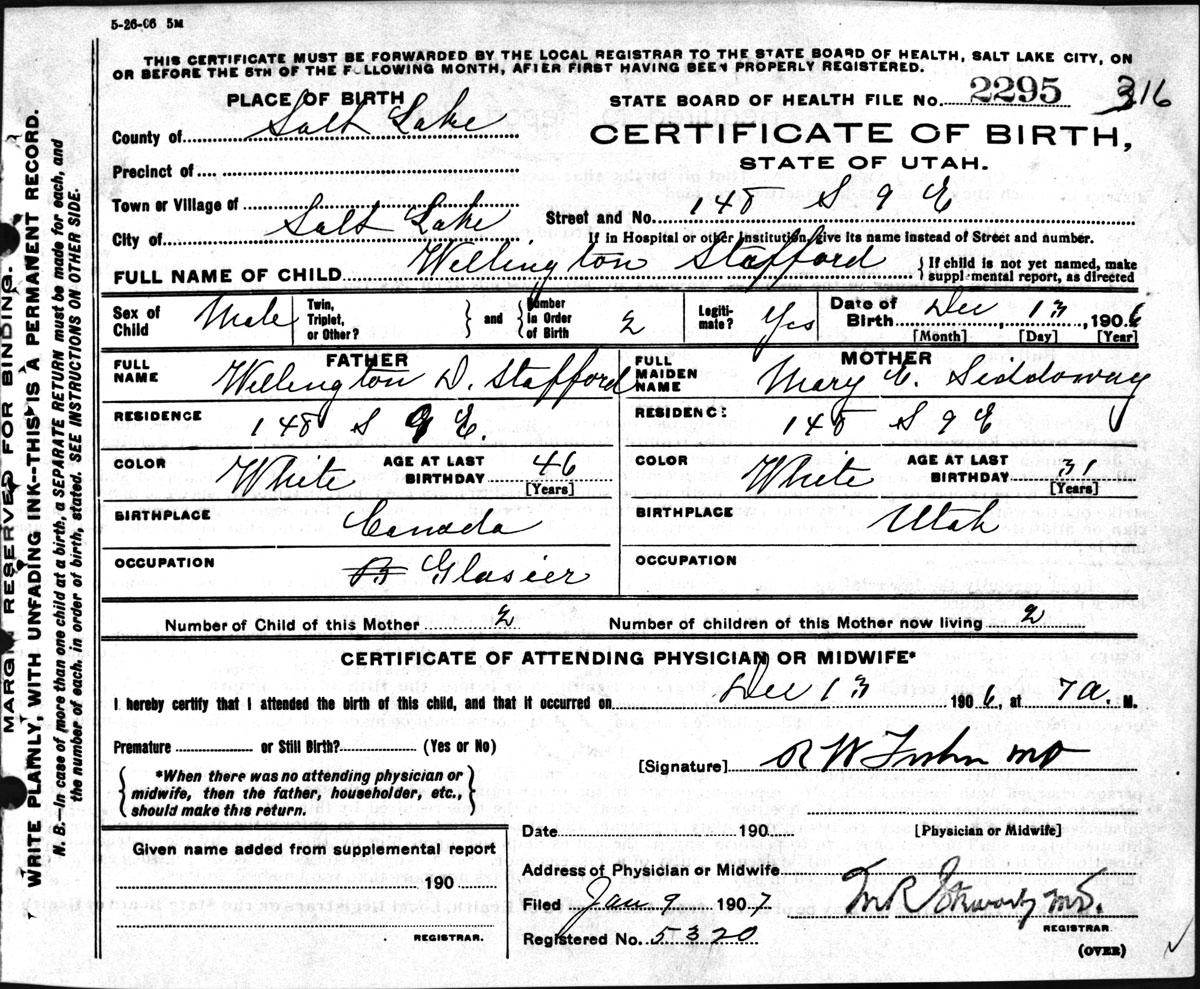 5-26-06 5M
THIS CERTIFICATE MUST BE FORWARDED BY THE LOCAL REGISTRAR TO THE STATE BOARD OF HEALTH, SALT LAKE CITY, ON
OR BEFORE THE 5TH OF THE FOLLOWING MONTH, AFTER FIRST HAVING BEEN PROPERLY REGISTERED.
PLACE OF BIRTH
STATE BOARD OF HEALTH FILE No. 2295 316
County of Salt Lake
CERTIFICATE OF BIRTH,
STATE OF UTAH.
Precinct of
Town or Village of
Street and No. 148 S 9 E
City of Salt Lake
If in Hospital or other Institution, give its name instead of Street and number.
FULL NAME OF CHILD Wellington Stafford { If child is not yet named, make supplemental report, as directed
Sex of Child Male Twin, Triplet, or Other? } and { Number in Order of Birth 2 Legitimate? Yes Date of Birth Dec 13, 1906
[Month] [Day] [Year]
FATHER
MOTHER
FULL NAME Wellington D. Stafford
FULL MAIDEN NAME Mary E. Siddoway
RESIDENCE 148 S 9 E.
RESIDENCE 148 S 9 E
COLOR White AGE AT LAST BIRTHDAY 46 [Years]
COLOR White AGE AT LAST BIRTHDAY 31 [Years]
BIRTHPLACE Canada
BIRTHPLACE Utah
OCCUPATION Glasier
OCCUPATION
Number of Child of this Mother 2 Number of children of this Mother now living 2
CERTIFICATE OF ATTENDING PHYSICIAN OR MIDWIFE*
I hereby certify that I attended the birth of this child, and that it occurred on Dec 13 1906, at 7 a. M.
Premature or Still Birth? (Yes or No)
[Signature] R W MD
{ *When there was no attending physician or
midwife, then the father, householder, etc.,
should make this return. }
Date 190
[Physician or Midwife]
Given name added from supplemental report
190
REGISTRAR.
Address of Physician or Midwife
Filed Jan 9 1907
M.D.
REGISTRAR
Registered No. 5320
(OVER)
MARGIN RESERVED FOR BINDING.
WRITE PLAINLY, WITH UNFADING INK--THIS IS A PERMANENT RECORD.
N. B.—In case of more than one child at a birth, a SEPARATE RETURN must be made for each, and
the number of each, in order of birth, stated. SEE INSTRUCTIONS ON OTHER SIDE.